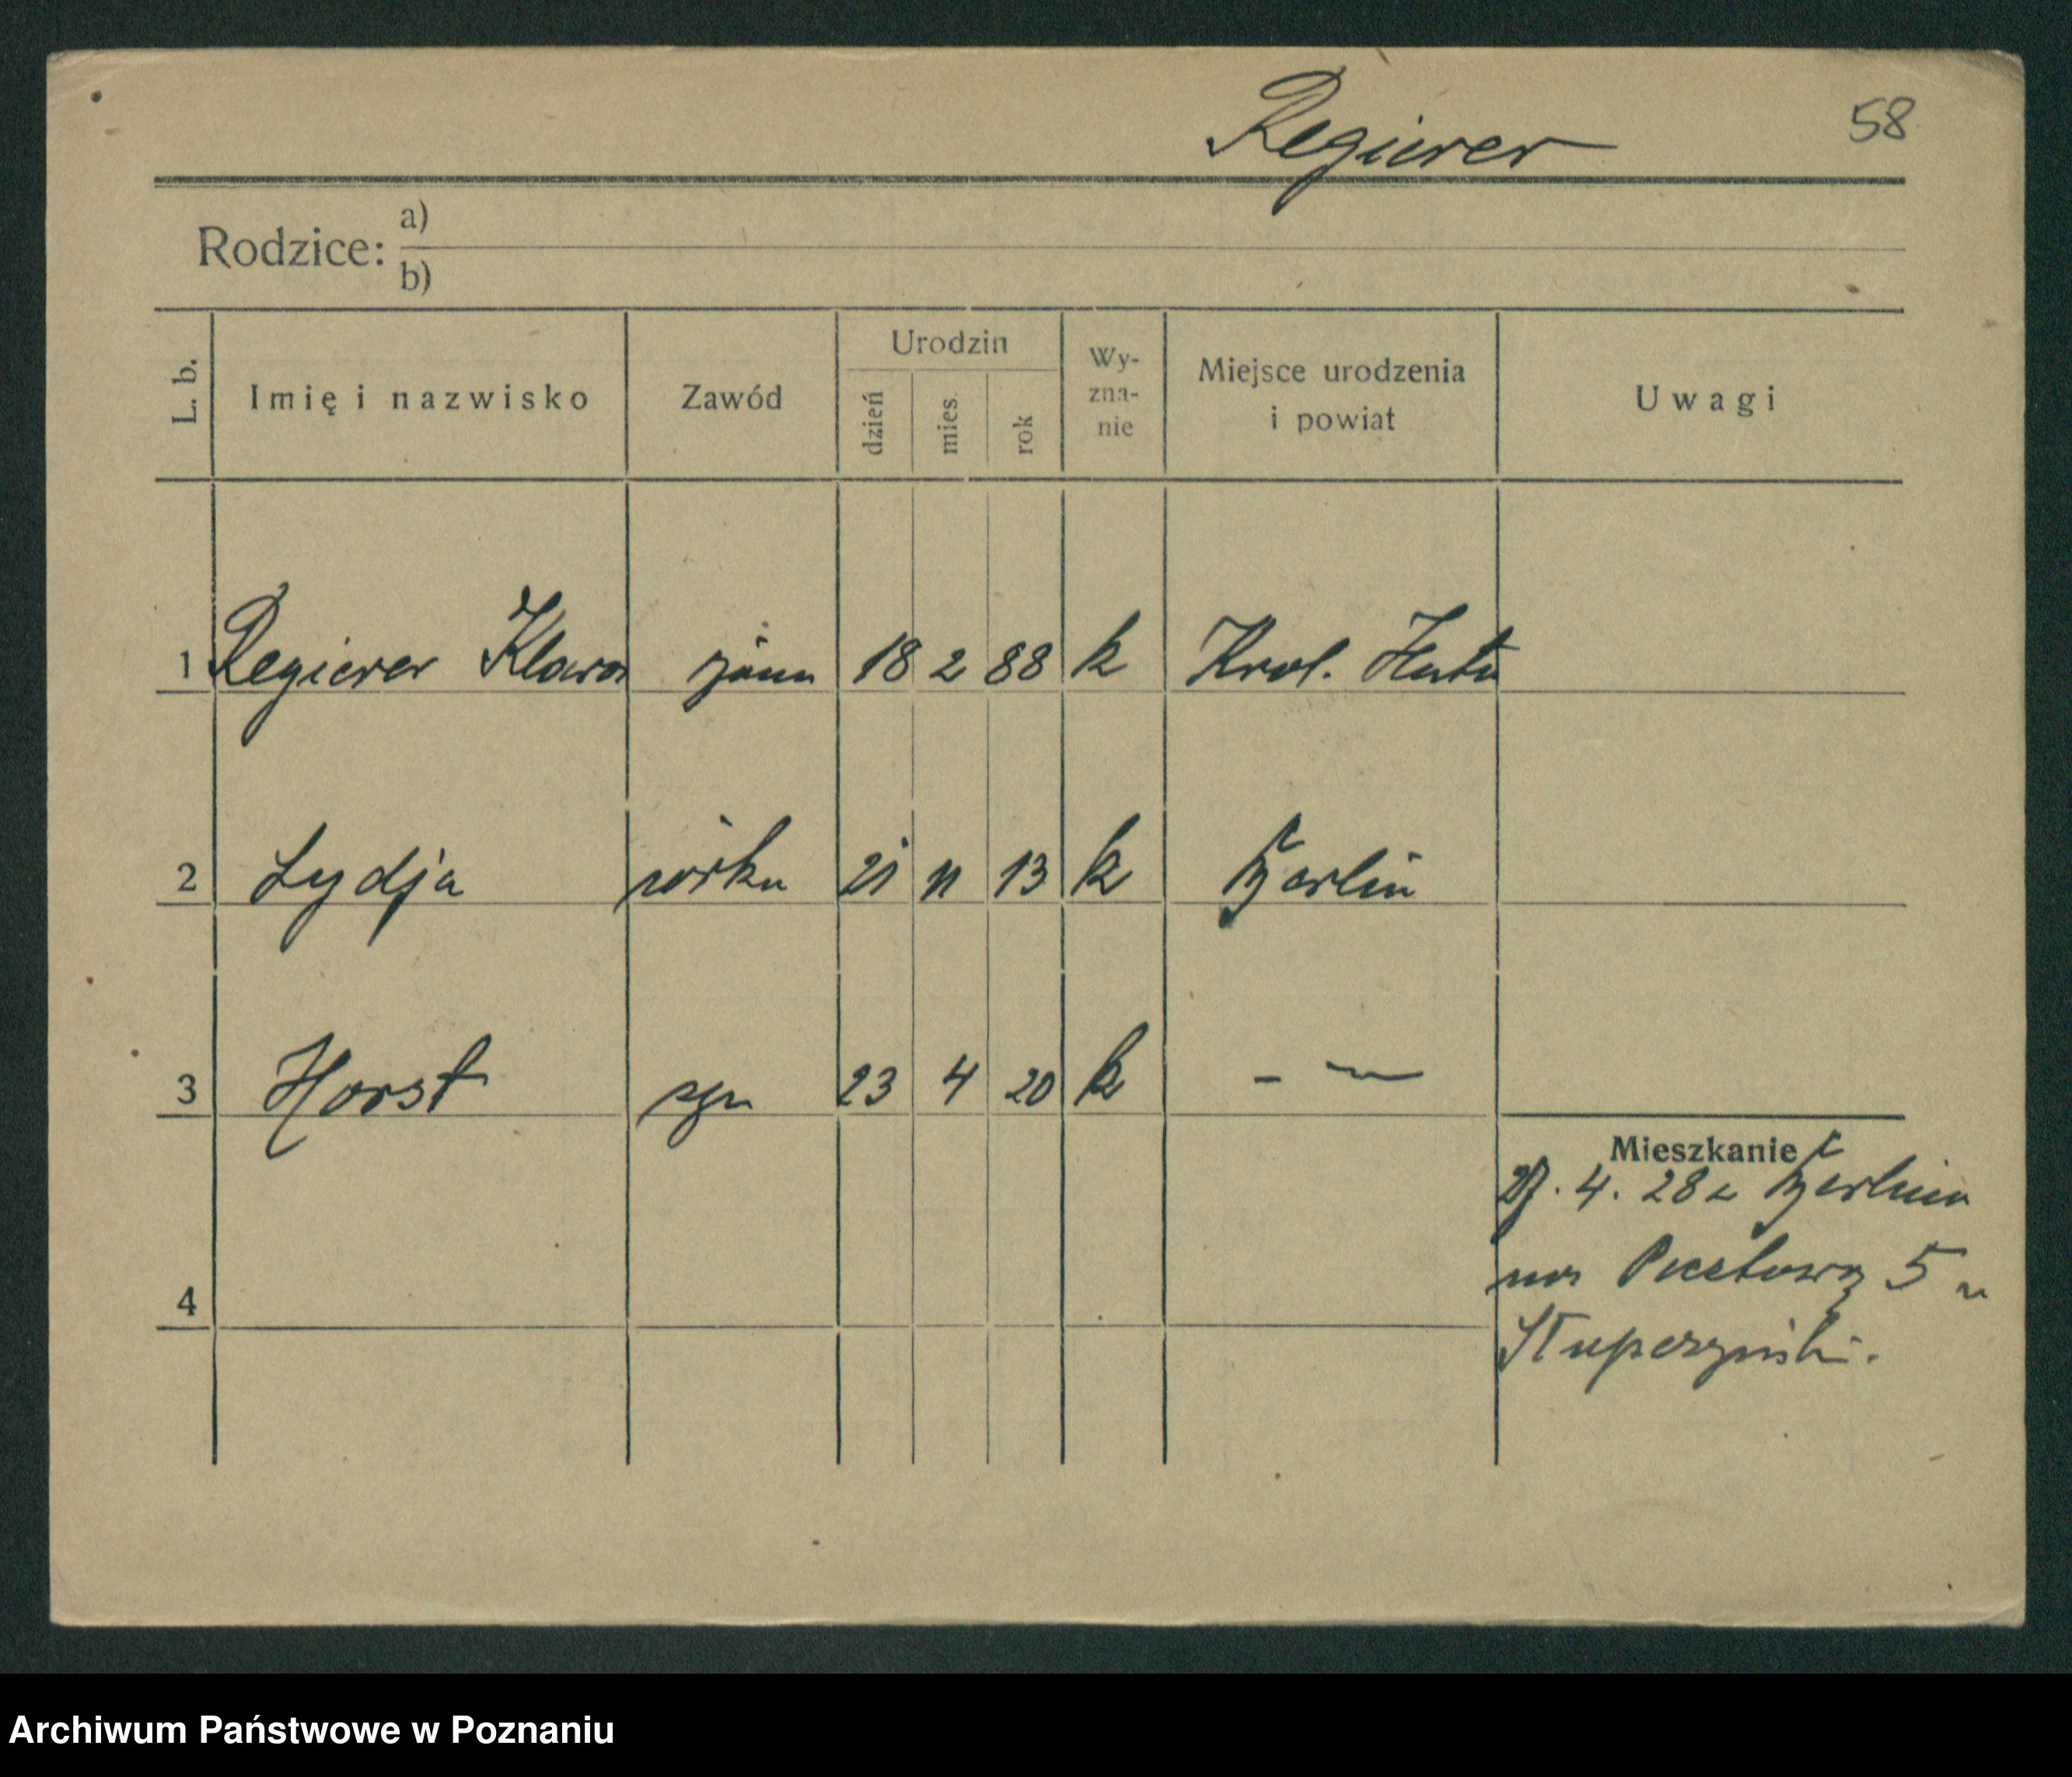 Regierer 58
Rodzice: a)
b)
L. b. Imię i nazwisko Zawód Urodzin dzień mies. rok Wy-zna-nie Miejsce urodzenia i powiat Uwagi
1 Regierer Klara 18 2 88 k Krol. Huta
2 Lydja córka 21 11 13 k Berlin
3 Horst syn 23 4 20 k - –
Mieszkanie
27. 4. 28 z Berlina
na Pocztową 5 u
4
Archiwum Państwowe w Poznaniu